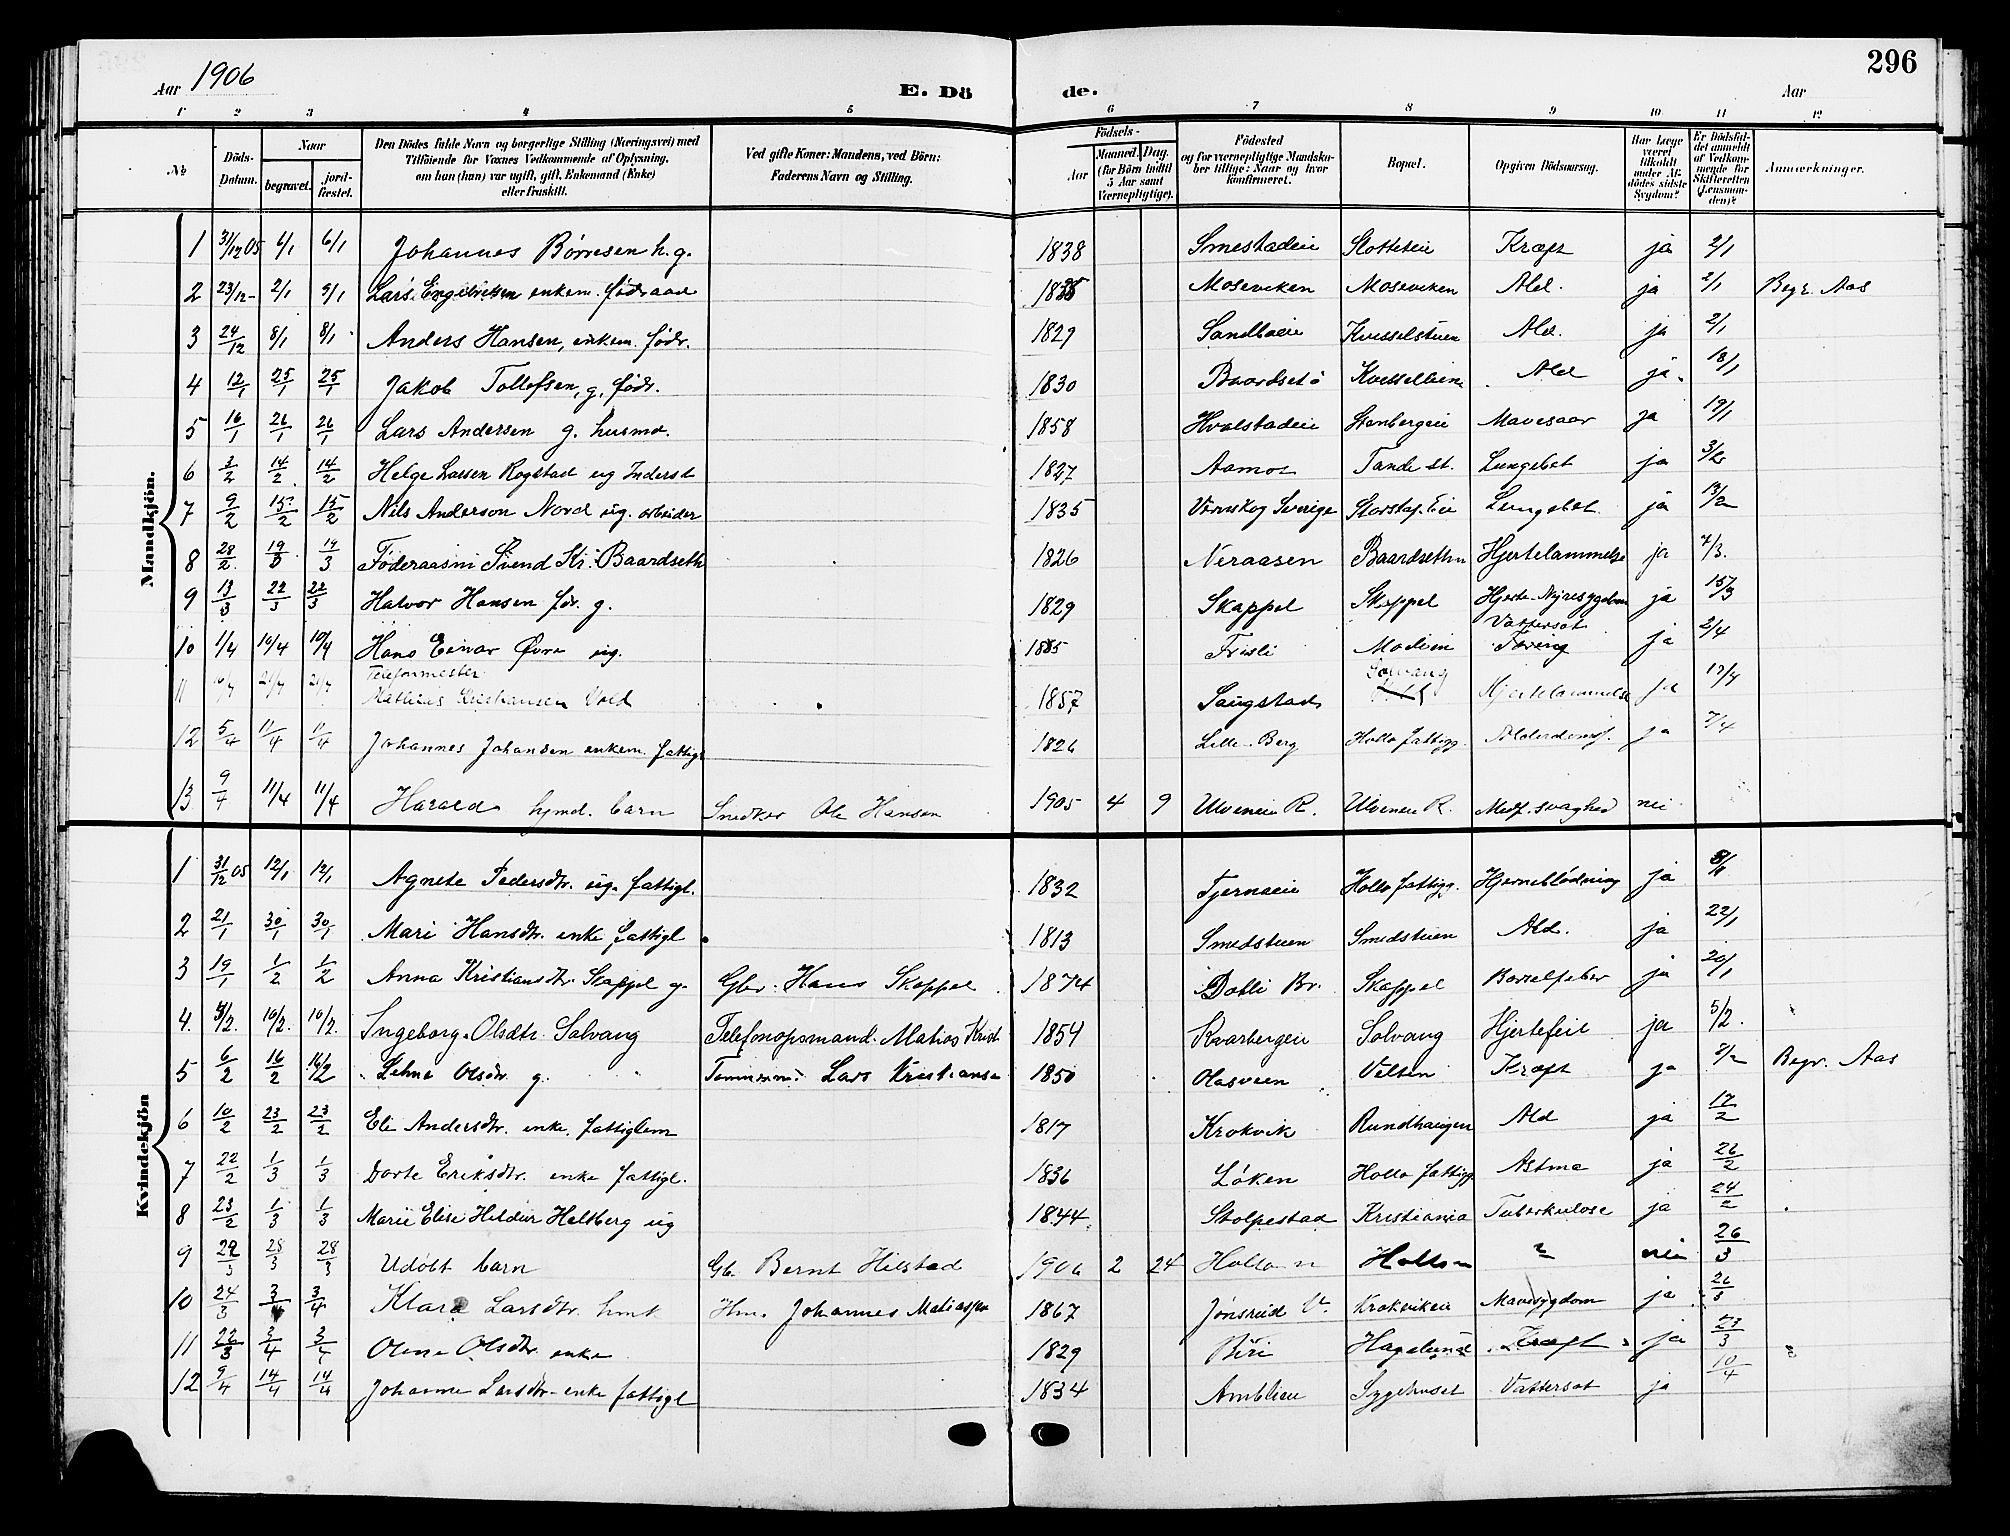 296
Aar 1906 E. Dö de. Aar
1 2 3 4 5 6 7 8 9 10 11 12
No Döds-Datum. Naar begravet. jordfæstet. Den Dödes fulde Navn og borgerlige Stilling (Næringsvei) med Tilföiende for Voxnes Vedkommende af Oplysning, om han (hun) var ugift, gift, Enkemand (Enke) eller fraskilt. Ved gifte Koner: Mandens, ved Börn: Faderens Navn og Stilling. Födsels- Aar Maaned. Dag. (for Börn indtil 5 Aar samt Værnepligtige). Födested og for værnepligtige Mandskaber tillige: Naar og hvor konfirmeret. Bopæl. Opgiven Dödsaarsag. Har Læge været tilkaldt under Afdödes sidste Sygdom? Er Dödsfaldet anmeldt af Vedkommende for Skifteretten (Lensmanden)? Anmærkninger.
Mandkjön.
1 31/12 05 6/1 6/1 Johannes Børresen h. g. 1838 Smestadeie Slotteteie Kræft ja 2/1
2 23/12 2/1 9/1 Lars Engebretsen enkem. føderaad 1835 Moseviken Moseviken Ald. ja 2/1 Begr. Aas
3 24/12 8/1 8/1 Anders Hansen, enkem. fødr. 1829 Sandbæie Kvesselstuen Ald. ja 2/1
4 12/1 25/1 25/1 Jakob Tollefsen, g. fødr. 1830 Baardset Ald ja 18/1
5 16/1 26/1 26/1 Lars Andersen g. husmd. 1858 Hvalstadeie Stenbergeie Mavesaar ja 19/1
6 3/2 14/2 14/2 Helge Larsen Rogstad ug Inderst 1827 Aamot Tande st. Lungebet ja 3/2
7 9/2 15/2 15/2 Nils Anderson Nord ug. arbeider 1835 Sverige Lungebet ja 13/2
8 28/2 19/3 19/3 Føderaasm Svend Kr. Baardseth 1826 Neraasen Baardsethn Hjertelammelse ja 7/3
9 13/3 22/3 22/3 Halvor Hansen før. g. 1829 Skappel Skappel Hjerte Nyresygdom ja 15/3
Vattersot
10 1/4 10/4 10/4 Hans Einar Øvre ug. 1885 Frisli Moeien Tæring ja 2/4
Telefonmester Solvang
11 21/4 21/4 Mathias Kristiansen Vold 1857 Saugstad Hjertelammelse ja 17/4
12 5/4 11/4 11/4 Johannes Johansen enkem. fattigl 1826 Lille-Berg Hollo fattigg. ja 7/4
13 9/4 11/4 11/4 Harald hjmd. barn Snedker Ole Hansen 1905 4 9 Ulveneie R. Ulveneie R. Medf. svaghed nei
Kvindekjön
1 31/12 05 12/1 12/1 Agnete Pedersdtr. ug. fattigl. 1832 Tjerneeie Hollo fattigg. Hjerneblødning ja 8/1
2 21/1 30/1 30/1 Mari Hansdtr. enke fattigl 1813 Smedstuen Smedstuen Ald. ja 22/1
3 19/1 1/2 1/2 Anna Kristiansdtr. Skappel g. Gbr. Hans Skappel 1874 Dobli Br. Skappel Barselfeber ja 20/1
4. 4/2. 10/2. 10/2. Ingeborg Olsdtr. Solvang Telefonopsmand. Matias Krist 1854 Kvarbergeie Solvang Hjertefeil ja 5/2.
5 6/2 16/2 16/2 Lehne Olsdtr g. Tømmerm. Lars Kristiansen 1850 Olasveen Velten Kræft ja 8/2 Begr. Aas
6 10/2 23/2 23/2 Eli Andersdtr. enke. fattiglem 1817 Krokvik Rundhaugen Ald ja 17/2
7 22/2 1/3 1/3 Dorte Eriksdtr. enke fattigl. 1836 Løken Hollo fattigg. Astma ja 26/2
8 23/2 1/3 1/3 Marie Elise Hildur Halsberg ug 1844 Stolpestad Kristiania Tuberkulose ja 24/2
9 22/3 28/3 28/3 Udøbt barn Gb. Bernt Hilstad 1906 2 24 Hollo n Hollo n ? nei 26/3
10 24/3 3/4 3/4 Klara Larsdtr. hmk Hm. Johannes Matiassen 1867 Jønsrud V. Krokviken Mavesygdom ja 26/3
11 22/3 3/4 3/4 Oline Olsdtr. enke 1829 Biri Hagelund Kræft ja 23/3
12 9/4 14/4 14/4 Johanne Larsdtr. enke fattigl 1834 Amblieu Sygehuset Vattersot ja 10/4